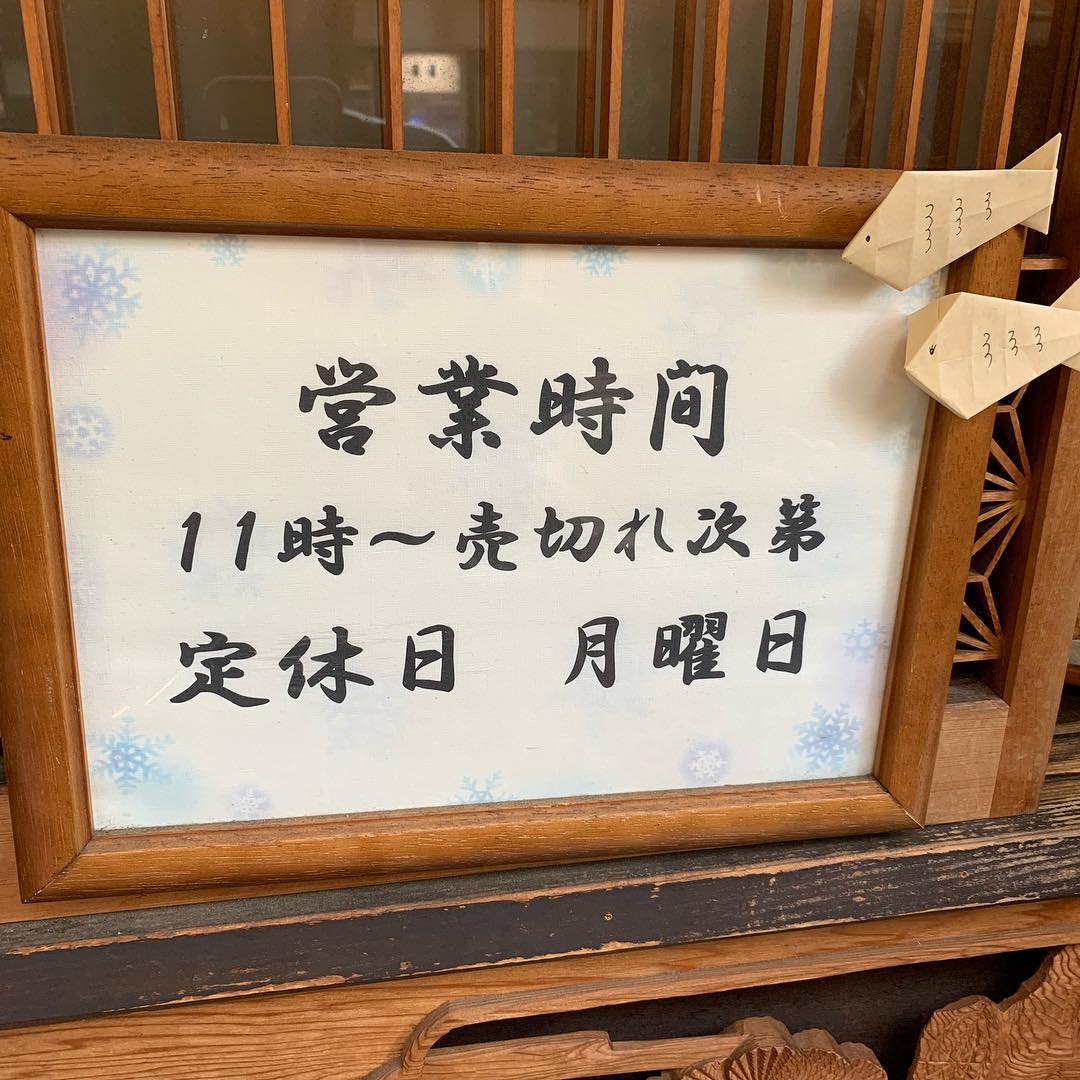 営業時間
11時～売切れ次第
定休日　月曜日